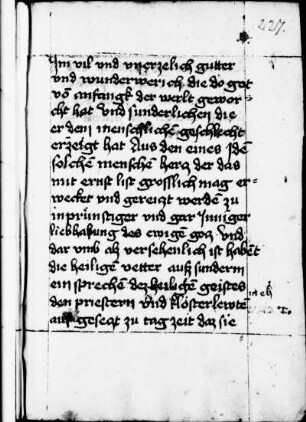 227.
Im vil vnd vnzelich gutter
vnd wunderwerch die do got
võ anfangk der werlt gewor-
cht hat Vnd sunderlichen die
er dem menschlichẽ geschlecht
erzeigt hat Aus den eines iden
solchem menschen hercz der das
mit ernst list grosslich mag er-
wecket vnd gereizt werden zu
inprünstiger vnd gar inniger
liebhabung des ewigen gotz Vnd
dar vmb als versehenlich ist habent
die heilige vetter auß sunderm
ein sprechen dez heiligen geistes
den priestern Vnd klosterlewten
auf geseczt zu tag zeit daz sie